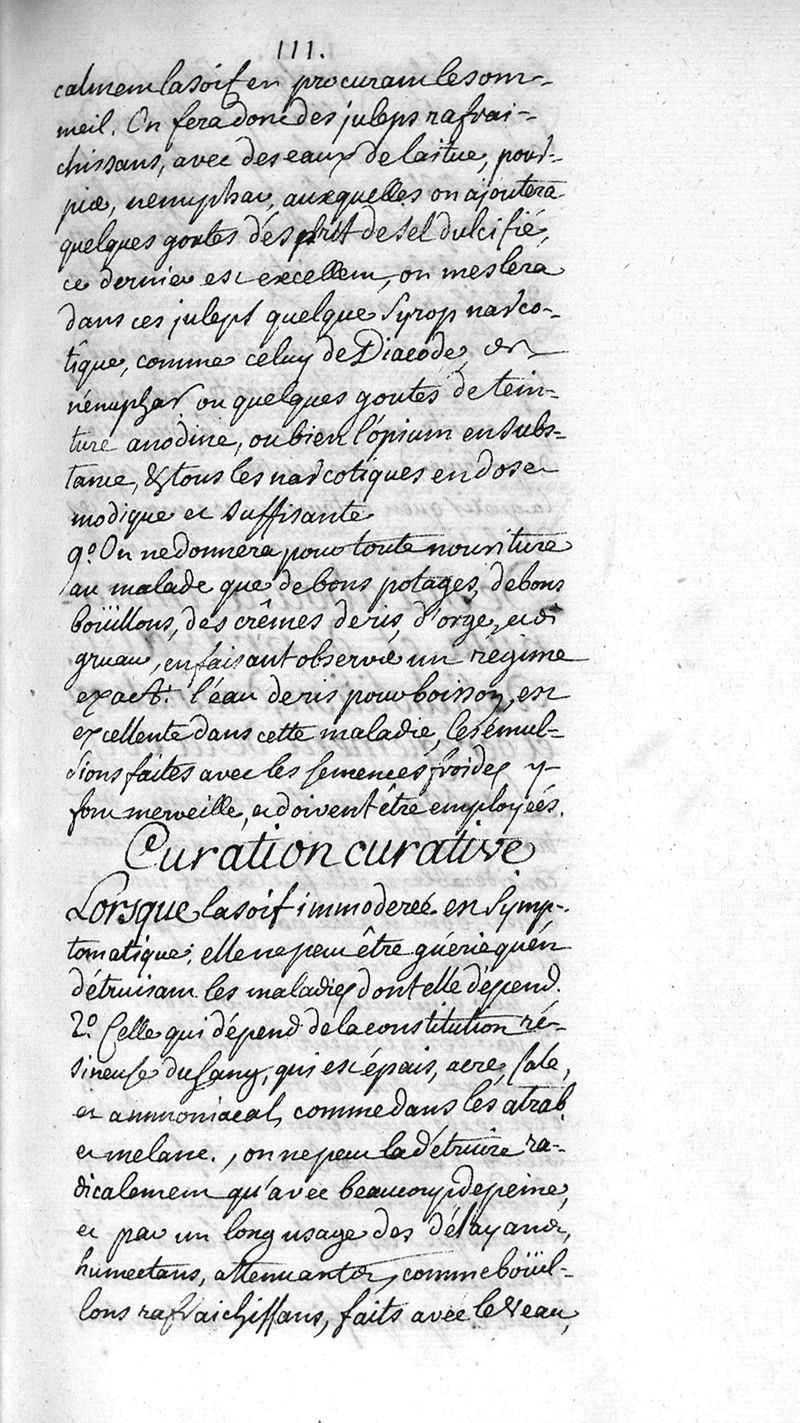 111.
calment la soif en procurant le som-
meil. On fera donc des juleps rafrai-
chissans, avec des eaux de laitue, pour-
pié, nenuphar, auxquelles on ajoutera
quelques goutes d'ésprit de sel dulcifié,
ce dernier est excellent, on meslera
dans ces juleps quelque syrop narco-
tique, comme celuy de Diacode, de
nénuphar ou quelques goutes de tein-
ture anodine, ou bien l'opium en subs-
tance, & tous les narcotiques en dose
modique et suffisante
9.° On ne donnera pour toute nouriture
au malade que de bons potages, de bons
boüillons, des crêmes de ris, d'orge, et de
gruau, en faisant observer un régime
exact. l'éau de ris pour boisson, est
excellente dans cette maladie, les émul-
sions faites avec les semences froides y
font merveille, et doivent être employées.
Curation curative
Lorsque la soif immoderée est symp-
tomatique; elle ne peut être guérie qu'én
détruisant les maladies dont elle dépend.
2.° Celle qui dépend de la constitution ré-
sineuse du sang, qui est épais, acre, salé,
et ammoniacal, comme dans les atrab.
et melanc., on ne peut la détruire ra-
dicalement qu'avec beaucoup de peine,
et par un long usage des délayants,
humectans, attenuants, comme boüil-
lons rafraichissans, faits avec le veau,